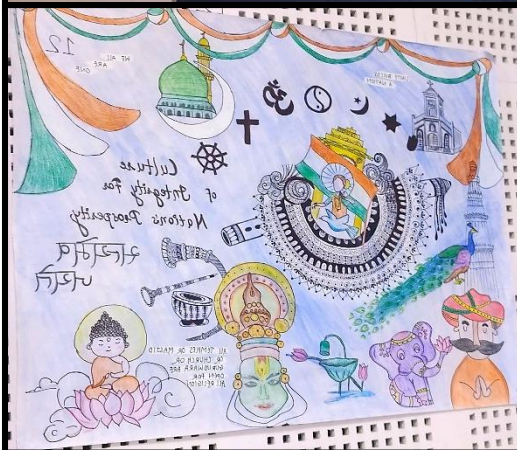 12
WE ALL
ARE
ONE
UNITY BUILDS
A NATION
Culture
of Integrity For
Nation's Prosperity
सत्यमेव
जयते
ALL TEMPLES OR MASJID
OR CHURCH OR
GURUDWARA ARE
OPEN FOR
ALL RELIGION